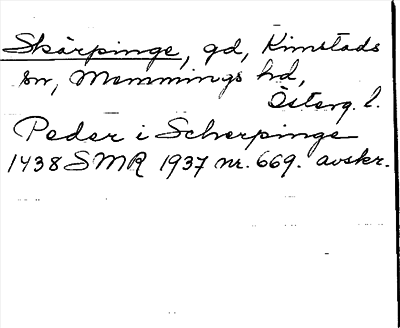 Skärpinge, gd, Kimstads
sn, Memmings hd,
Österg. l.
Peder i Scherpinge
1438 SMR 1937 nr. 669. avskr.